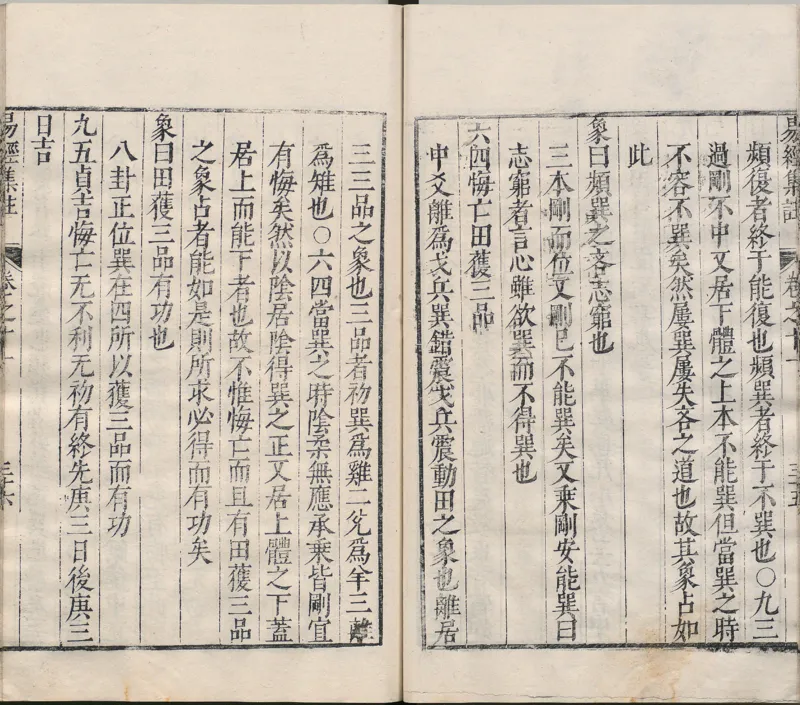 易經集註 卷之十一 三十五
頻復者終于能復也頻巽者終于不巽也〇九三
過剛不中又居下體之上本不能巽但當巽之時
不容不巽矣然屢巽屢失吝之道也故其象占如
此
象曰頻巽之吝志窮也
三本剛而位又剛已不能巽矣又乘剛安能巽曰
志窮者言心雖欲巽而不得巽也
六四悔亡田獲三品
中爻離爲戈兵巽錯震戈兵震動田之象也離居
三三品之象也三品者初巽爲雞二兌爲羊三離
爲雉也〇六四當巽之時陰柔無應承乘皆剛宜
有悔矣然以陰居陰得巽之正又居上體之下蓋
居上而能下者也故不惟悔亡而且有田獲三品
之象占者能如是則所求必得而有功矣
象曰田獲三品有功也
八卦正位巽在四所以獲三品而有功
九五貞吉悔亡无不利无初有終先庚三日後庚三
日吉
易經集註 卷之十一 三十六